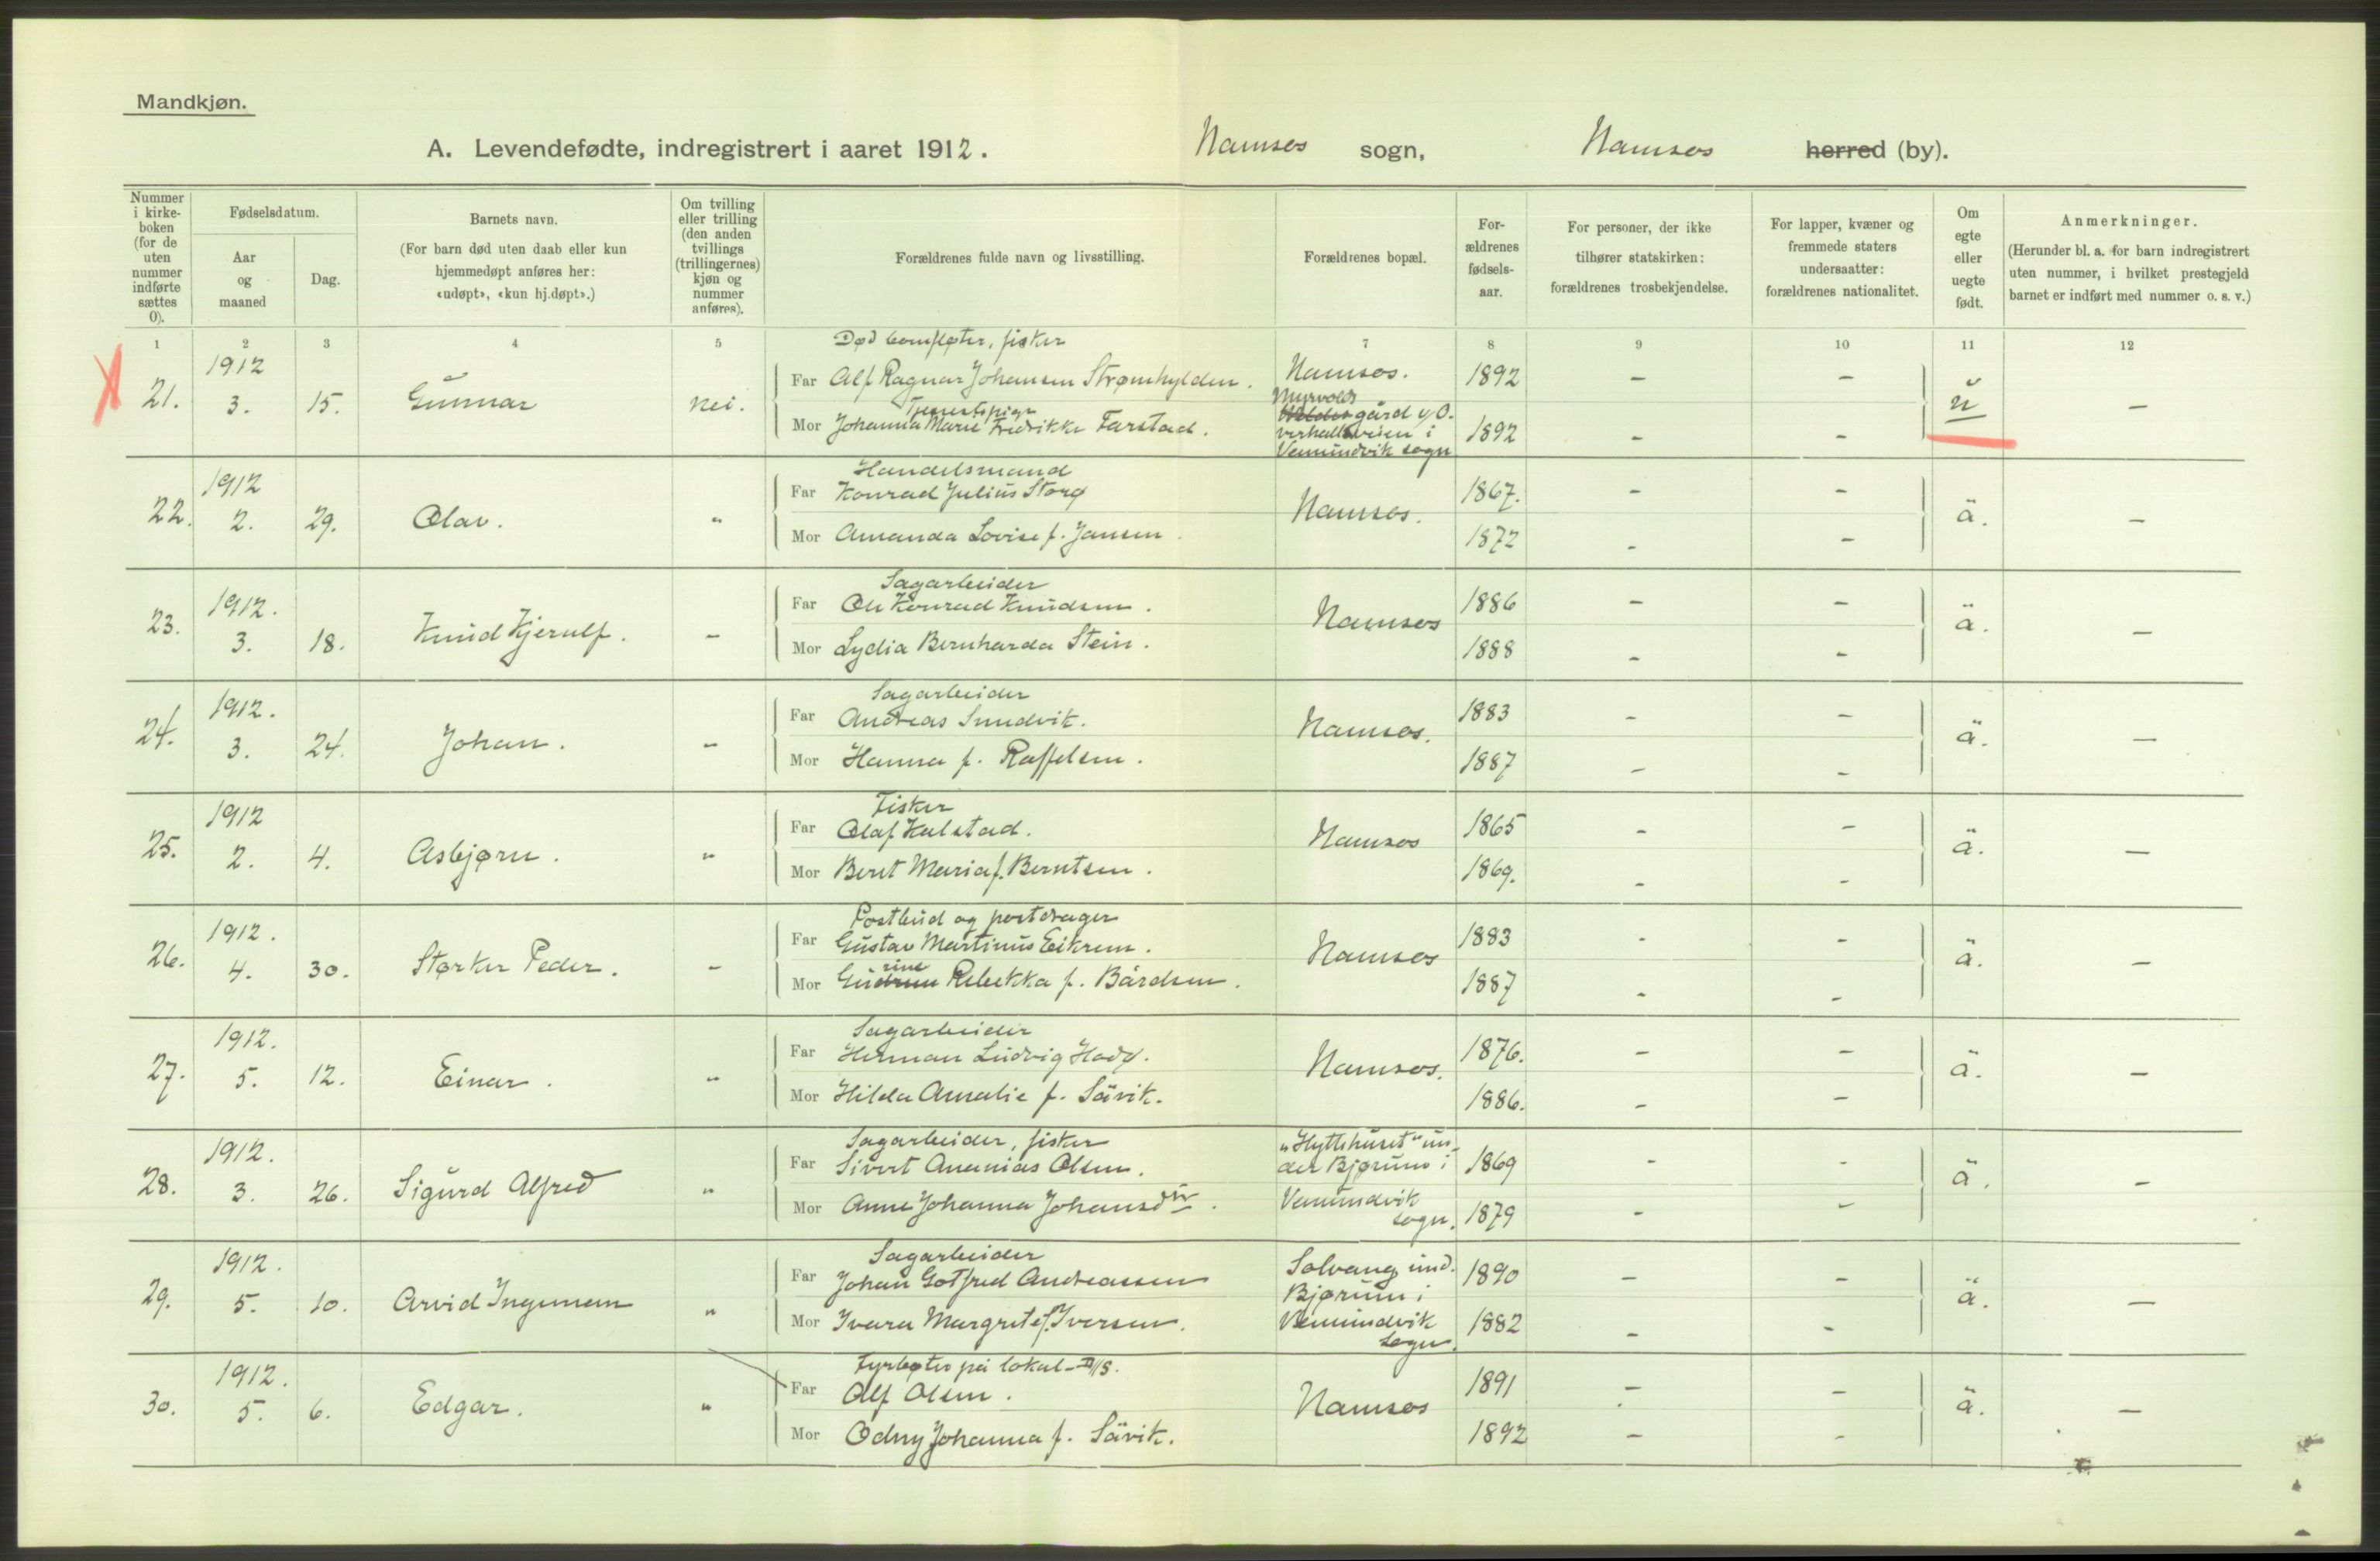 Mandkjøn.
A. Levendefødte, indregistrert i aaret 1912. Namsos sogn, Namsos herred (by).
Nummer i kirke-boken (for de uten nummer indførte sættes 0).
Fødselsdatum.
Aar og maaned
Dag.
Barnets navn.
(For barn død uten daab eller kun hjemmedøpt anføres her: «udøpt», «kun hj.døpt».)
Om tvilling eller trilling (den anden tvillings (trillingernes) kjøn og nummer anføres).
Forældrenes fulde navn og livsstilling.
Forældrenes bopæl.
For-ældrenes fødsels-aar.
For personer, der ikke tilhører statskirken: forældrenes trosbekjendelse.
For lapper, kvæner og fremmede staters undersaatter: forældrenes nationalitet.
Om egte eller uegte født.
Anmerkninger.
(Herunder bl. a. for barn indregistrert uten nummer, i hvilket prestegjeld barnet er indført med nummer o. s. v.)
1 2 3 4 5 7 8 9 10 11 12
fisker
21. 1912 3. 15. Gunnar nei. Far Alf Ragnar Johansen Strømhylden. Namsos. 1892 – – u –
Tjenestepige
Mor Johanna Marie Fredrikke Farstad. Myrvolds gård v/O.verhallsveien i Vemundvik sogn 1892 – –
Handelsmand
22. 1912 2. 29. Olav. " Far Konrad Julius Storø Namsos. 1867. – – ä. –
Mor Amanda Lovise f. Jansen. 1872 – –
Sagarbeider
23. 1912. 3. 18. Knud Kjerulf. – Far Ole Konrad Knudsen. Namsos 1886 – – ä. –
Mor Lydia Bernharda Stein. 1888 – –
Sagarbeider
24. 1912. 3. 24. Johan. – Far Andreas Sundvik. Namsos. 1883 – – ä. –
Mor Hanna f. Raffelsen. 1887 – –
Fisker
25. 1912 2. 4. Asbjørn. " Far Olaf Kalstad. Namsos 1865 – – ä. –
Mor Beret Maria f. Berntsen. 1869. – –
Postbud og postdrager
26. 1912. 4. 30. Størker Peder. – Far Gustav Martinus Eikrem. Namsos 1883 – – ä. –
Mor Gurine Rebekka f. Bårdsen. 1887 – –
Sagarbeider
27. 1912. 5. 12. Einar. " Far Herman Ludvig Hadø. Namsos. 1876. – – ä. –
Mor Hilda Amalie f. Sävik. 1886. – –
Sagarbeider, fisker
28. 1912. 3. 26. Sigurd Alfred " Far Sivert Ananias Olsen. "Hyttehuset" un-der Bjørum i 1869 – – ä. –
Mor Anne Johanna Johansdtr. Vemundvik sogn. 1879 – –
Sagarbeider
29. 1912. 5. 10. Arvid Ingemann " Far Johan Gotfred Andreassen Solvang und. Bjørum i 1890 – – ä. –
Mor Ivara Margrete f. Iversen. Vemundvik sogn. 1882 – –
Fyrbøter på lokal-D/S.
30. 1912. 5. 6. Edgar. " Far Alf Olsen. Namsos 1891 – – ä. –
Mor Odny Johanna f. Sävik. 1892 – –